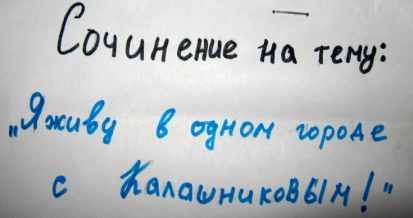 Сочинение на тему:
„Я живу в одном городе
с Калашниковым!"